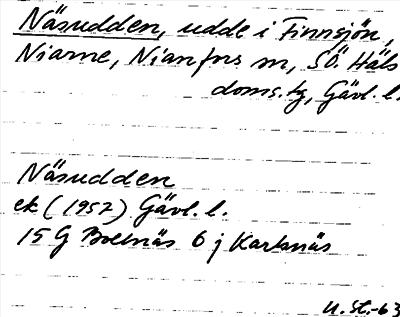 Näsudden, udde i Finnsjön,
Niarne, Nianfors sn, SÖ. Häls
doms.tg, Gävl. l.
Näsudden
ek (1957) Gävl. l.
15 G Bollnäs 6 j Karlsnäs
U.St.-63